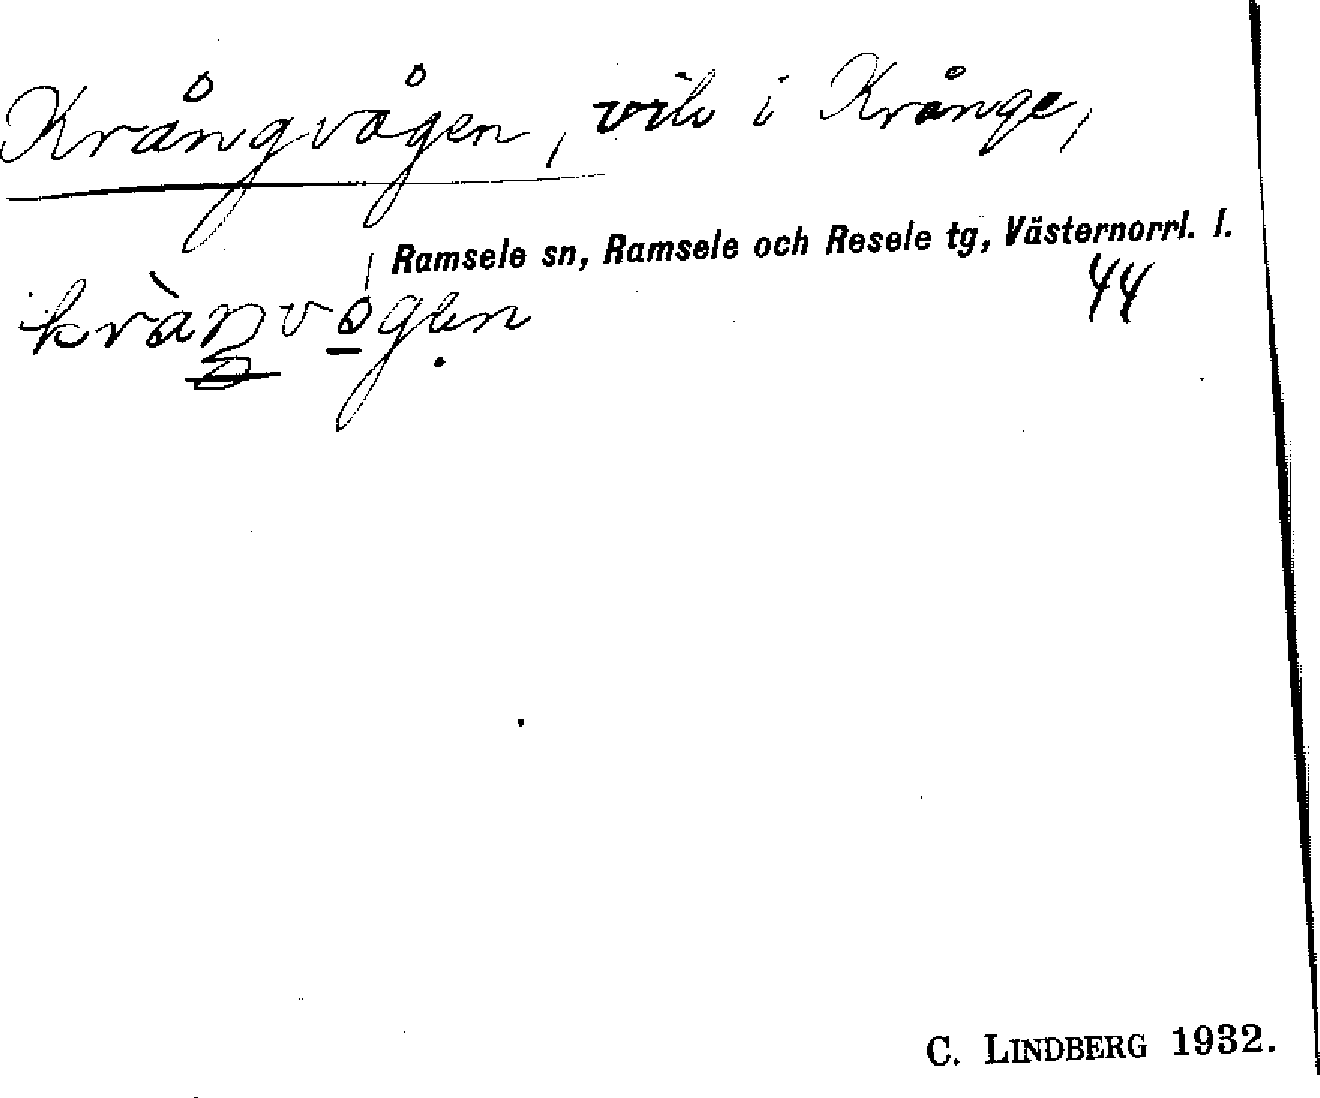 Krångvågen, vik i Krånge,
Ramsele sn, Ramsele och Resele tg, Västernorrl. l.
44
C. LINDBERG 1932.